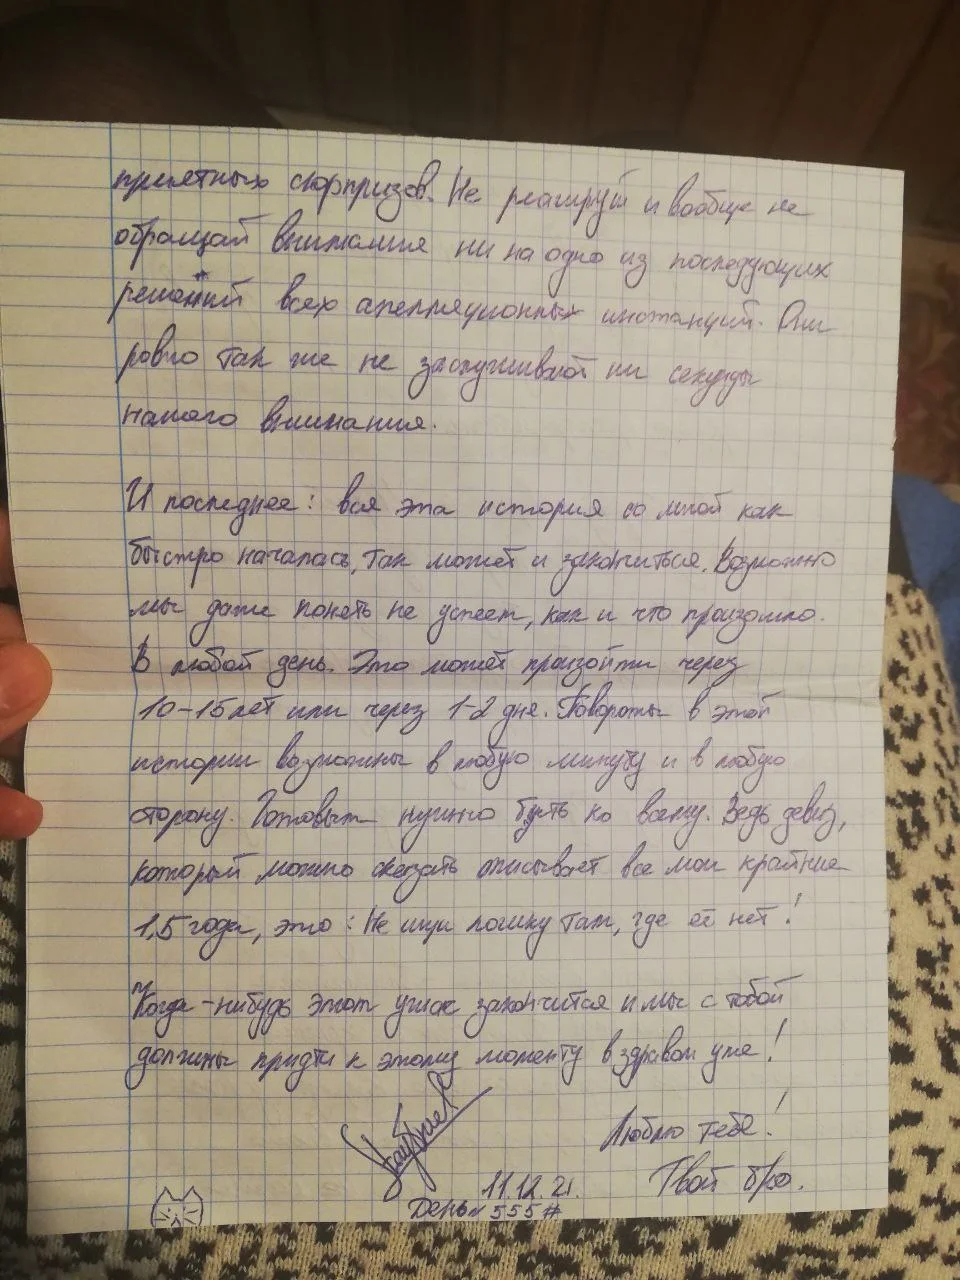 приятных сюрпризов. Не реагируй и вообще не
обращай внимания ни на одно из последующих
решений всех апелляционных инстанций. Они
ровно так же не заслуживают ни секунды
нашего внимания.
И последнее: вся эта история со мной как
быстро началась, так может и закончиться. Возможно
мы даже понять не успеем, как и что произошло.
В любой день. Это может произойти через
10-15 лет или через 1-2 дня. Повороты в этой
истории возможны в любую минуту и в любую
сторону. Готовым нужно быть ко всему. Ведь девиз,
который можно сказать описывает все мои крайние
1,5 года, это: Не ищи логику там, где её нет!
Когда-нибудь этот ужас закончится и мы с тобой
должны придти к этому моменту в здравом уме!
Люблю тебя!
Твой бро.
11.12.21.
День № 555#